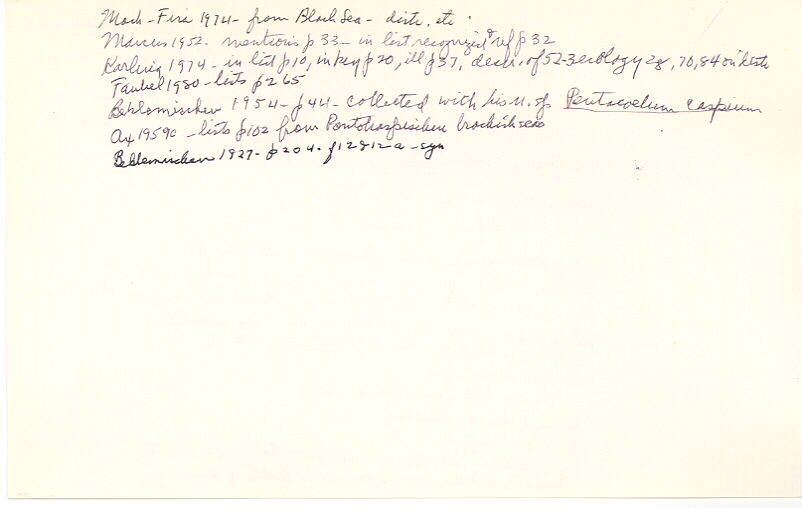 Mack-Fira 1974 - from Black Sea - distr. etc.
Marcus 1952 - mentions p 33 - in list recognized & ref p 32
Karling 1974 - in list p 10, in key p 20, ill p 37, descr. of 52-3 ecology 28, 70, 84 in
Faubel 1980 - lists p 265
Beklemischev 1954 - p 44 - collected with his n. sp Pentacoelum caspium
Ax 1959c - lists p 102 from Pontokaspischen brackish seas
Beklemischev 1927 - p 204 - f 12 & 12a - syn